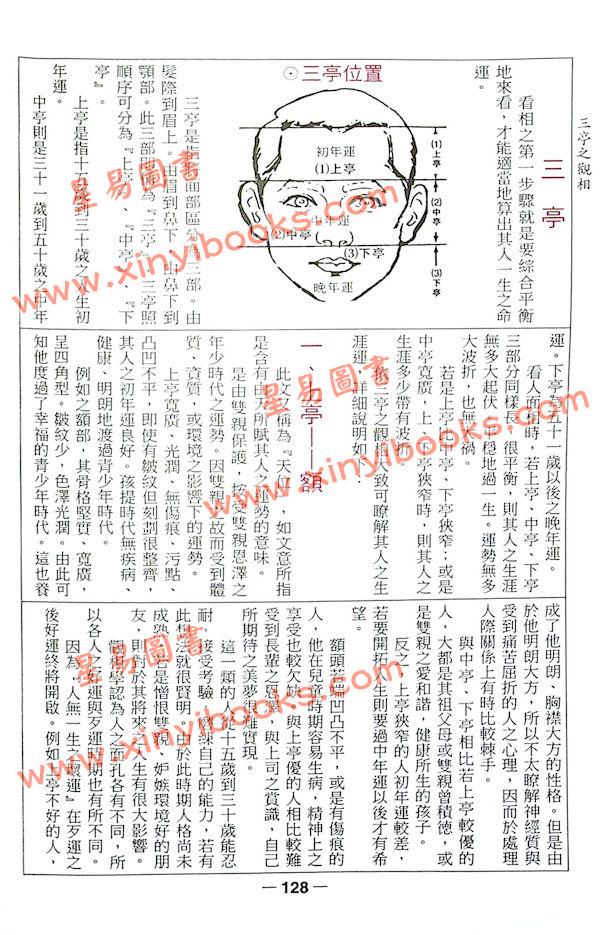 三亭之觀相
三亭
看相之第一步驟就是要綜合平衡
地來看，才能適當地算出其人一生之命
運。
⊙三亭位置
初年運
(1)上亭
中年運
(2)中亭
(3)下亭
晚年運
(1)上亭
(2)中亭
(3)下亭
三亭是指把面部區分為三部。由
髮際到眉上。由眉到鼻下。由鼻下到
顎部。此三部即稱為『三亭』。三亭照
順序可分為『上亭』、『中亭』、『下
亭』。
上亭是指十五歲到三十歲之人生初
年運。
中亭則是三十一歲到五十歲之中年
運。下亭為五十一歲以後之晚年運。
看人面相時，若上亭、中亭、下亭
三部分同樣長，很平衡，則其人之生涯
無多大起伏，平穩地過一生。運勢無多
大波折，也無大禍。
若是上亭比中亭、下亭狹窄；或是
中亭寬廣，上、下亭狹窄時，則其人之
生涯多少帶有波折。
按三亭之觀相大致可瞭解其人之生
涯運，詳細說明如下：
一、上亭——額
此亦又稱為『天位』，如文意所指
是含有由天所賦其人之運勢的意味。
是由雙親保護，按受雙親恩澤之
年少時代之運勢。因雙親之故而受到體
質、資質，或環境之影響下的運勢。
上亭寬廣、光潤、無傷痕、污點、
凸凹不平，即使有皺紋但刻劃很整齊，
其人之初年運良好。孩提時代無疾病、
健康、明朗地渡過青少年時代。
例如之額部，其骨格堅實、寬廣，
呈四角型。皺紋少，色澤光潤。由此可
知他度過了幸福的青少年時代。這也養
成了他明朗、胸襟大方的性格。但是由
於他明朗大方，所以不太瞭解神經質與
受到痛苦屈折的人之心理，因而於處理
人際關係上有時比較棘手。
與中亭、下亭相比若上亭較優的
人，大都是其祖父母或雙親曾積德，或
是雙親之愛和諧，健康所生的孩子。
反之，上亭狹窄的人初年運較差，
若要開拓人生則要過中年運以後才有希
望。
額頭若端凹凸不平，或是有傷痕的
人，他在兒童時期容易生病，精神上之
享受也較欠缺。與上亭優的人相比較難
受到長輩之恩惠，與上司之賞識，自己
所期待之美夢很難實現。
這一類的人從十五歲到三十歲能忍
耐，接受考驗，鍛鍊自己的能力，若有
此想法就很賢明。由於此時期人格尚未
成熟，若是憎恨雙親、妒嫉環境好的朋
友，則對於其將來之人生有很大影響。
觀相學認為人之面孔各有不同，所
以各人之好運與歹運時期也有所不同。
因為『人無一生之壞運』在歹運之
後好運終將開啟。例如上亭不好的人，
— 128 —
星易圖書
www.xinyibooks.com
星易圖書
www.xinyibooks.com
星易圖書
www.xinyibooks.com